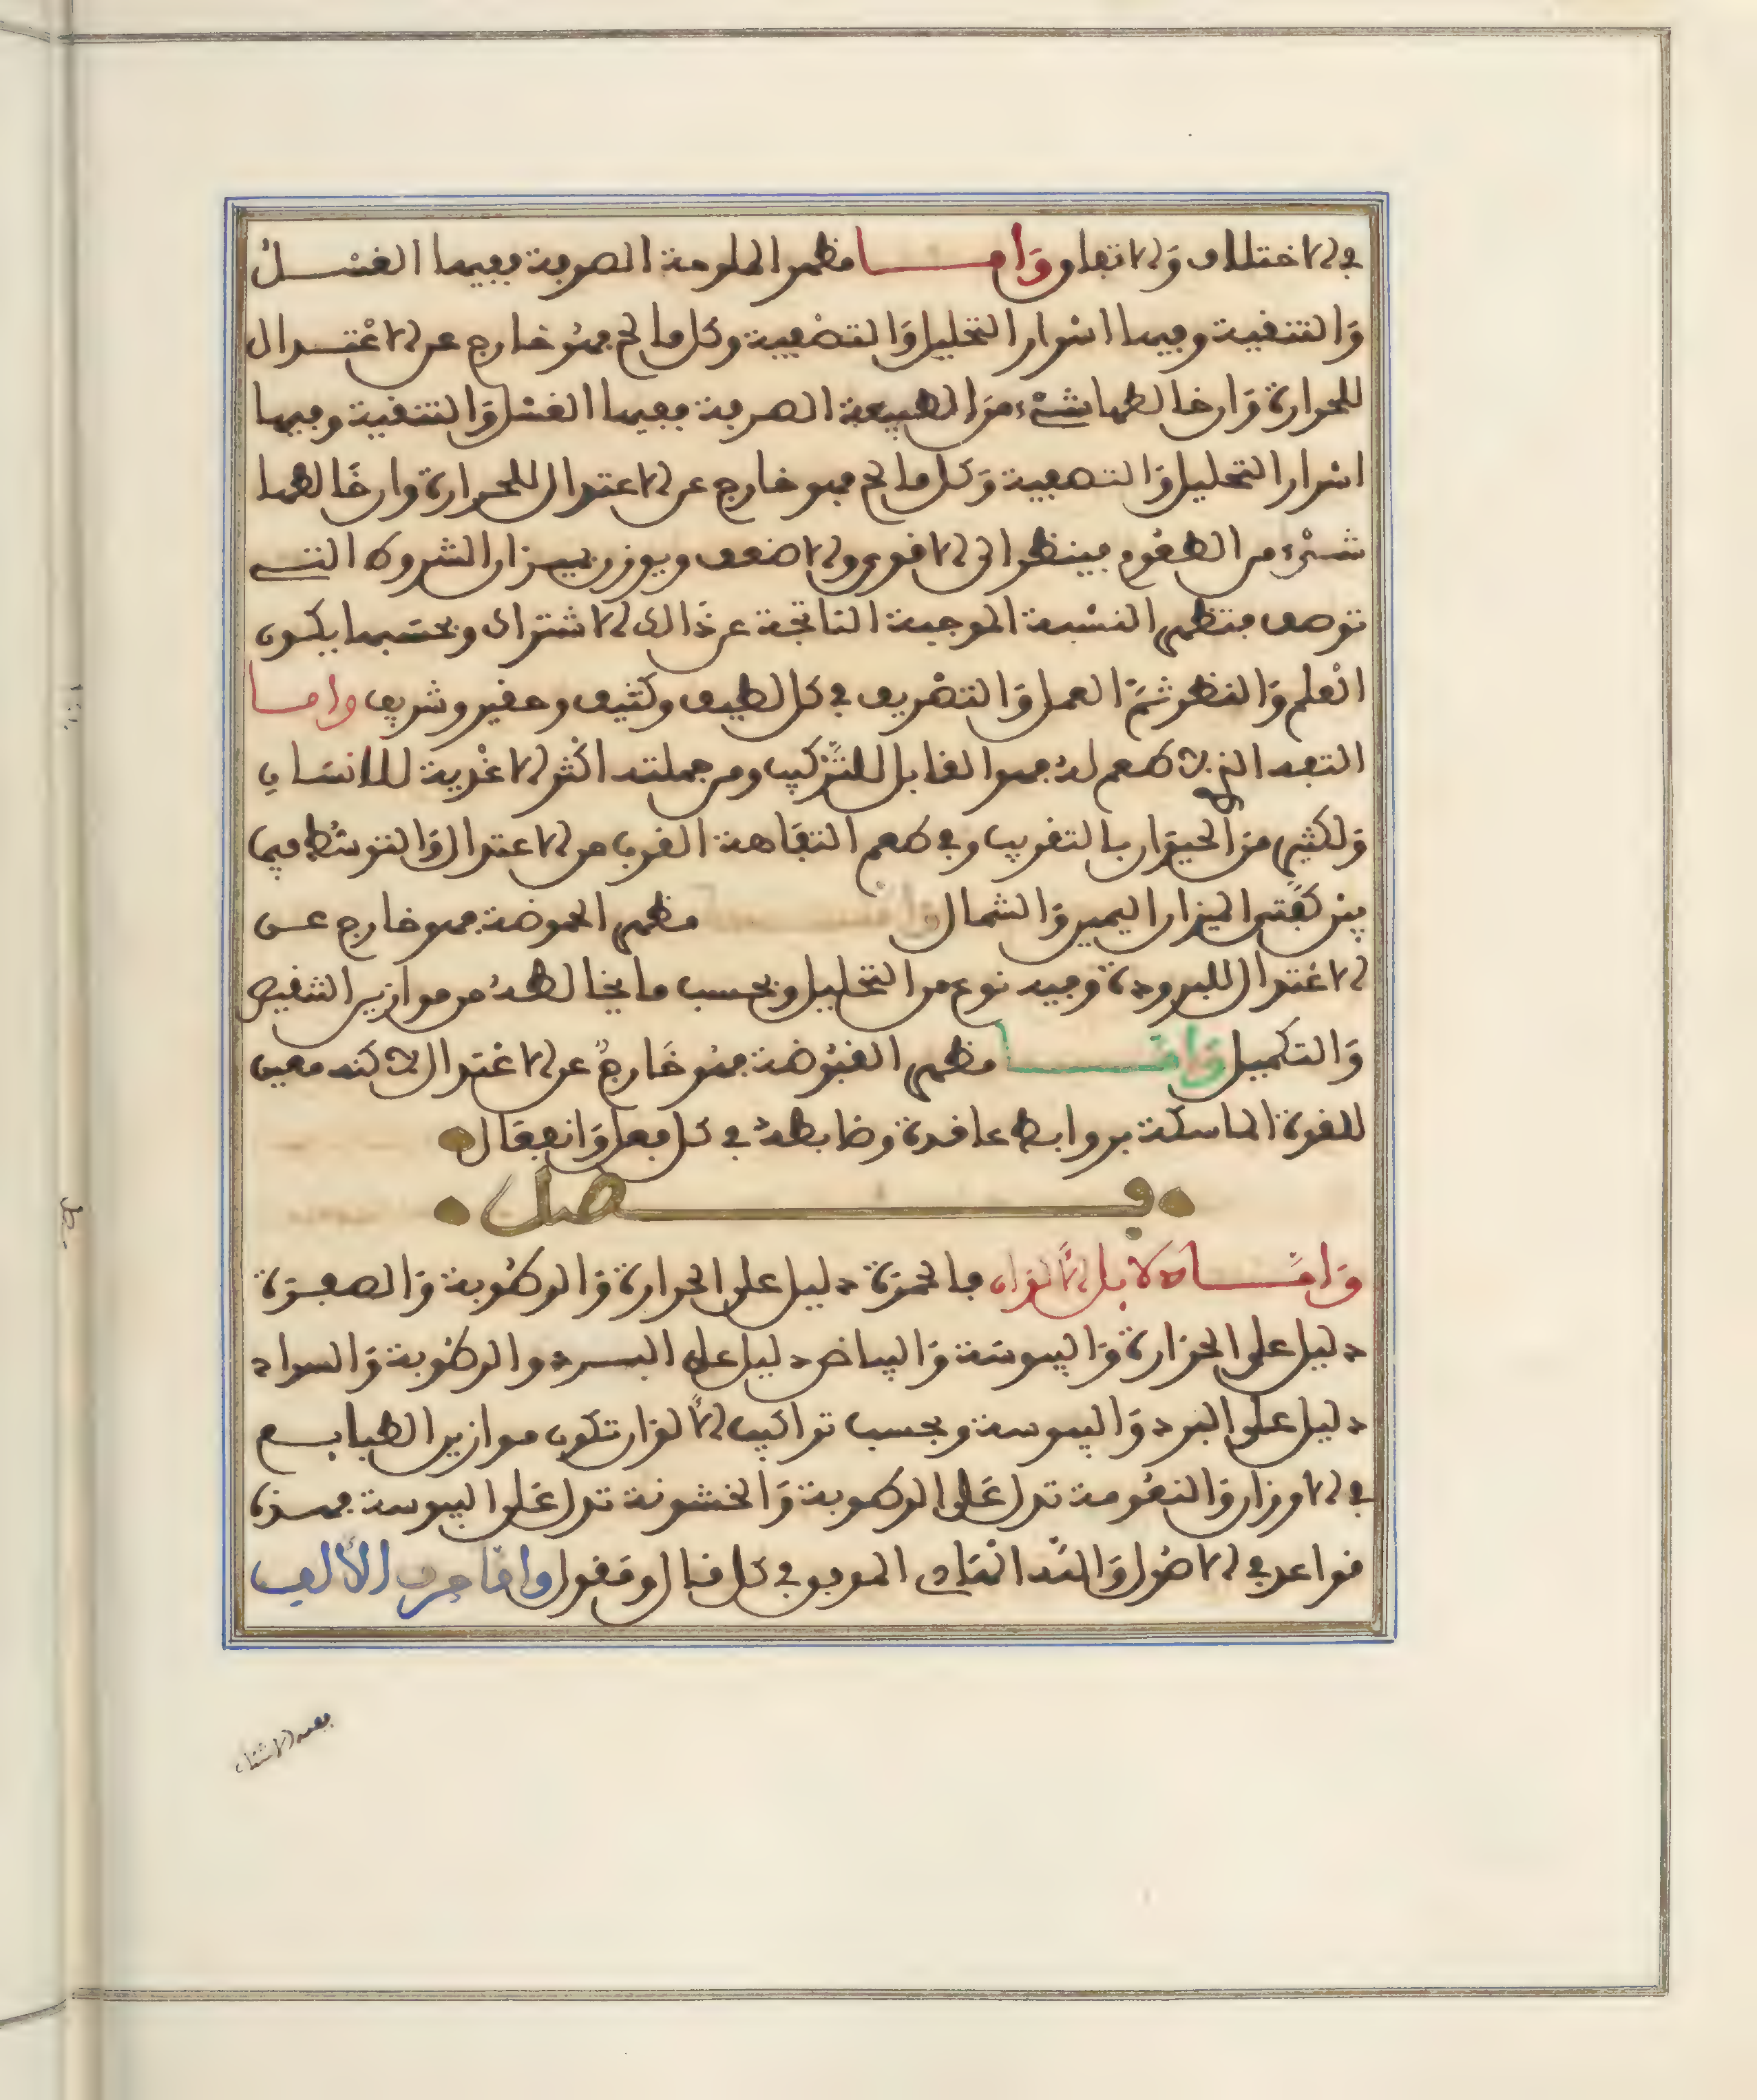 في الاختلاف والاتفاق وَامـــا مظهر الملوحة الصرفة ففيها الغسل
وَالتنقية وفيها اسْرار التحليل وَالتصْفية وكل مالح فهُو خارج عن الاعْتدال
للحرارة وَان خالطها شيْء منَ الطبيعة الصرفة ففيها الغسْل وَالتنقية وفيها
اسْرار التحليل وَالتصفية وَكل مالح فهو خارج عن الاعتدال للحرارة وان خَالطها
شيْء من الطعُوم فينظر الى الاقوى والاضعف ويوزن بميزان الشروط التي
توصف فتظهر النسْبة الموجبة الناتجة عن ذَالك الاشتراك وبحسَبها يكون
العْلم وَالنظر ثمَّ العمل وَالتصْريف في كل لطيف وكثيف وحقير وشريف وامـا
التفه الذي لا طعم لهُ فهو القابل للتَّركيب ومن جملته اكْثر الاغْذية للانسَان
وَلكثير منَ الحيوَان بالتقريب وفي طعم التفَاهة القرب من الاعتدال وَالتوسُّط فيما
بيْن كفَّتي الميزان اليمين وَالشمال مظهر الحموضة فهو خارج عن
الاعْتدال للبرودة وفيه نوع من التحليل وبحسب ما يخالطهُ من موازين التنقيص
وَالتكميل وَامَّــا مظهر القبُوضة فهُو خَارجٌ عن الاعْتدال لاكنه معين
للقوة الماسكة بروابط عاقدة وضابطةٌ في كل فعل وَانفعَال
فــصل
وَامَّــا دلايل الألوان فالحمرَة دليل على الحرارة وَالرطُوبة وَالصفرَة
دليل على الحرَارة وَاليبوسَة وَالبياض دليل على البـرد والرطُوبة وَالسواد
دليل علَى البرد وَاليبوسة وبحسب تراكيب الألوان تكون موازين الطبايـع
في الاوزان وَالنعُومة تدل عَلى الرطوبة وَالخشونة تدل عَلى اليبوسة فهـذه
قواعد في الاصُول وَاللهُ الهَادي الموفق في كل مقال ومَقول وامَّا حرف الألف
ففيه الاشتقا